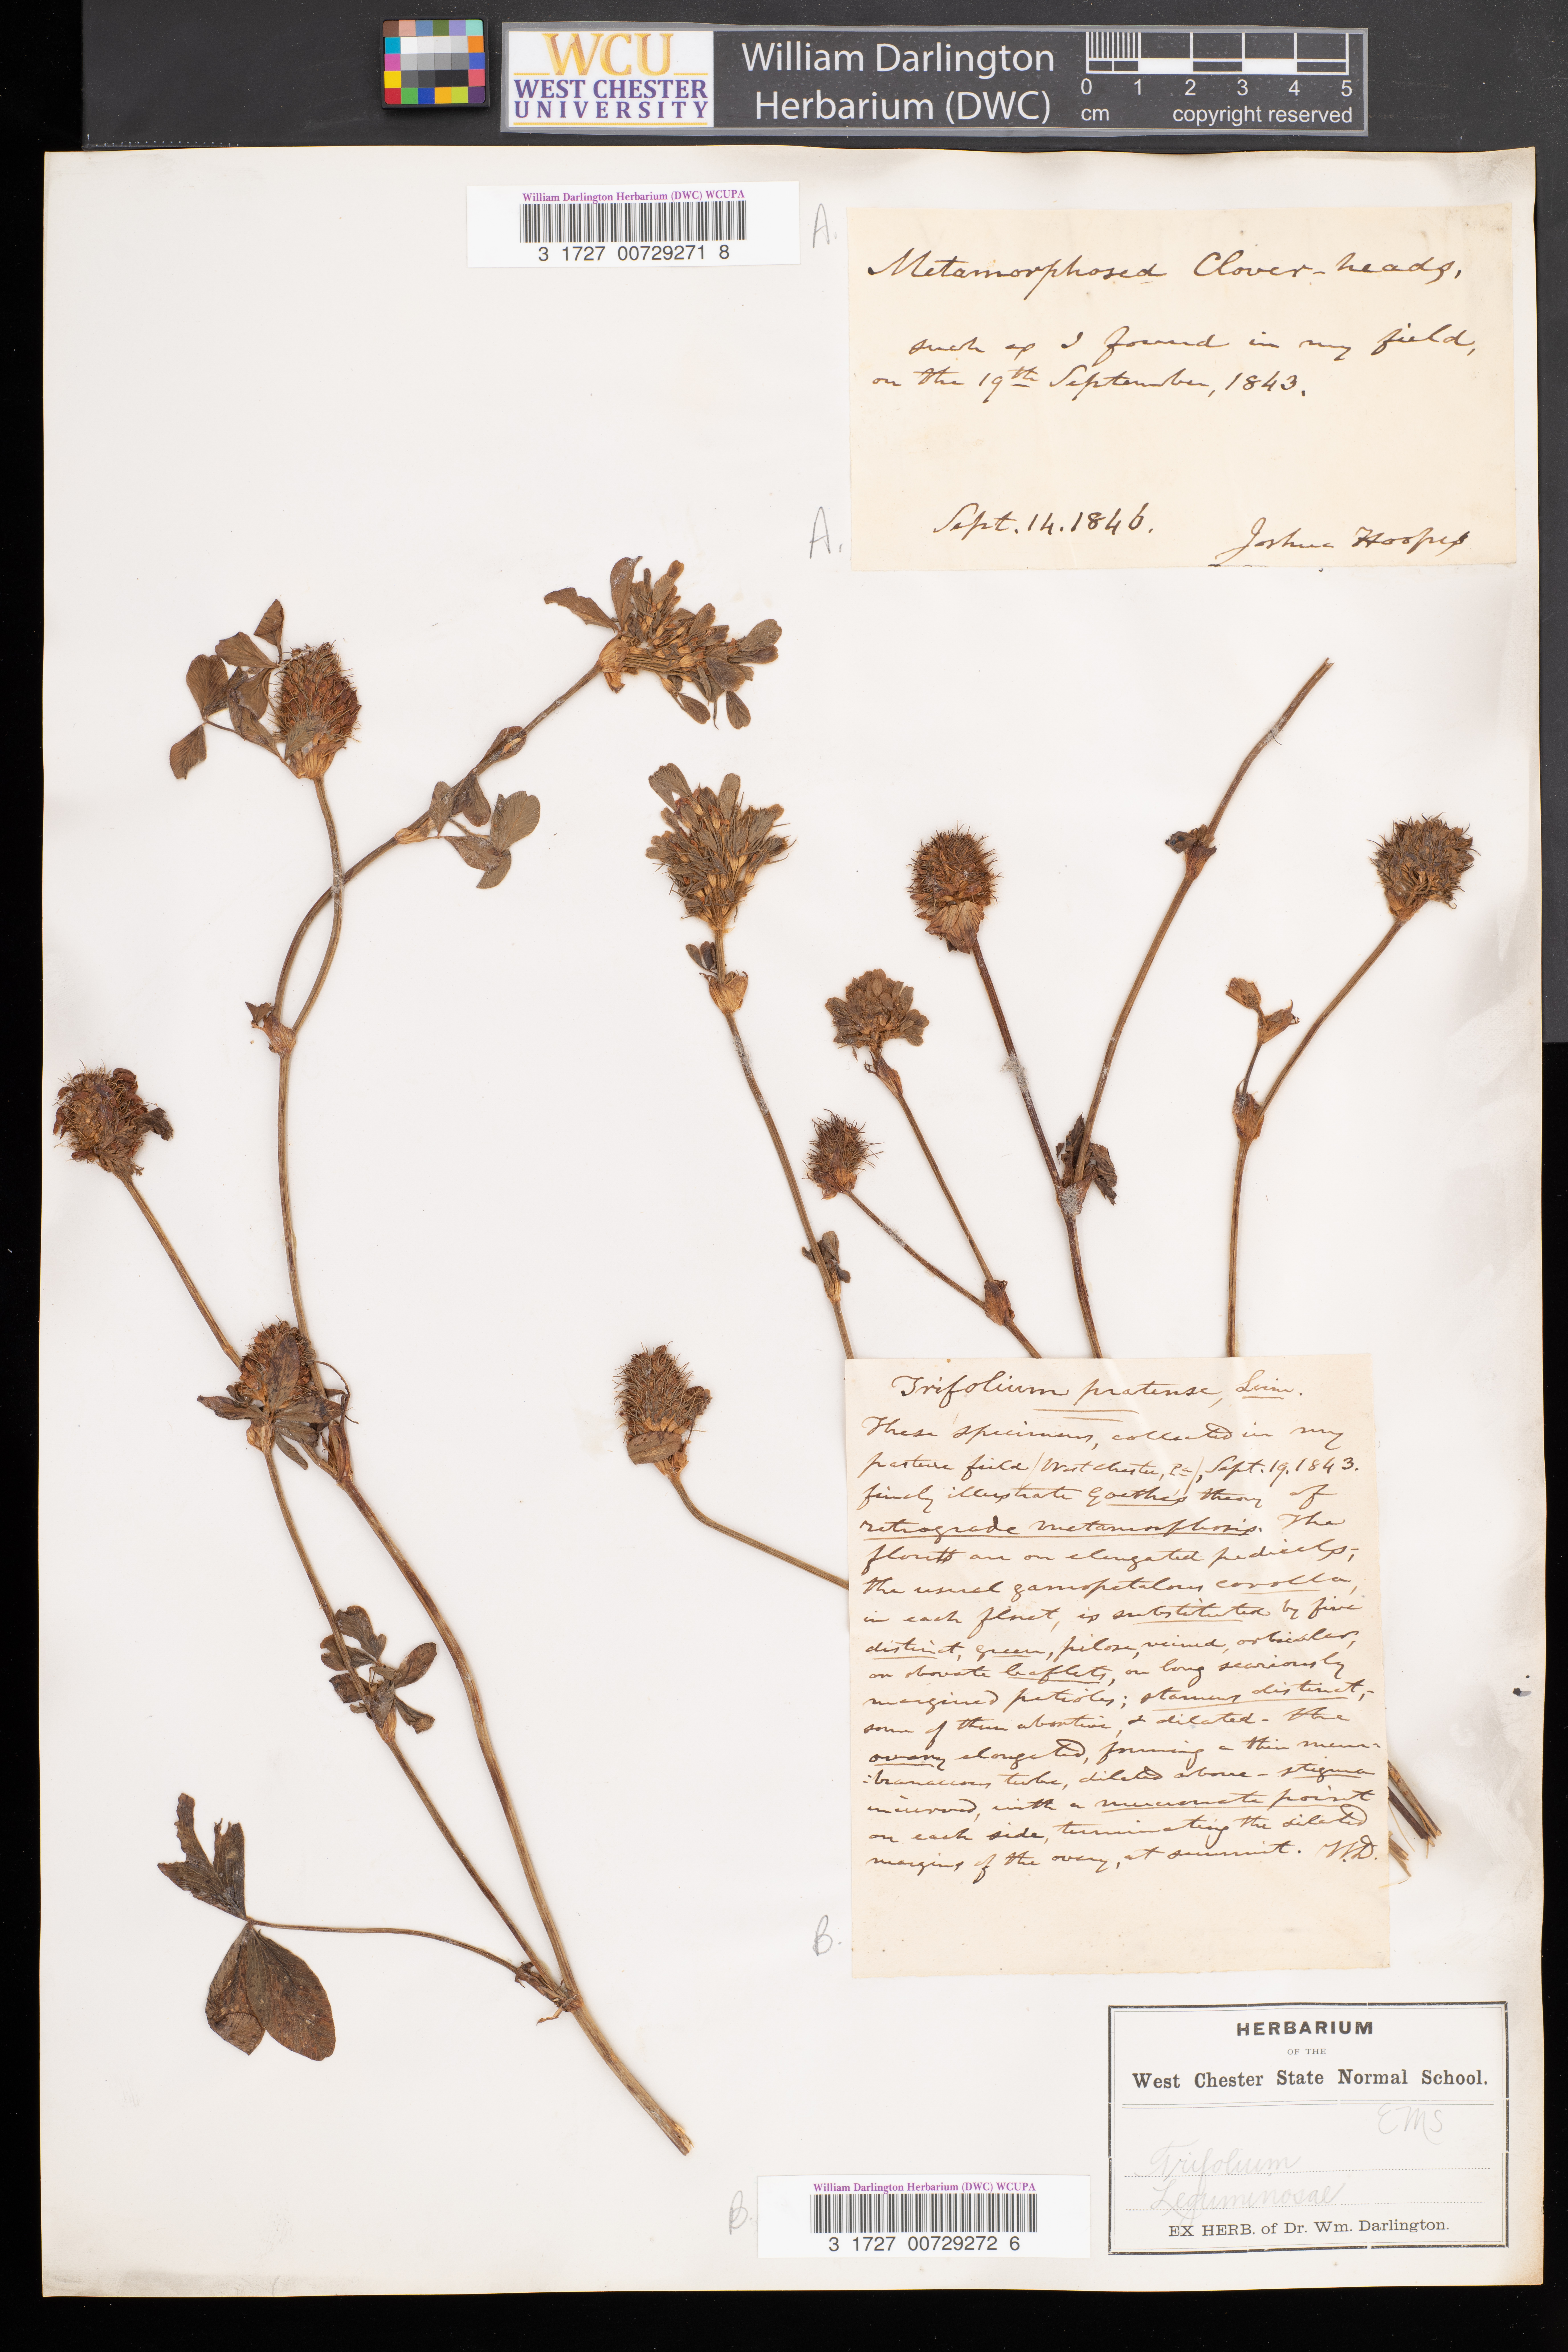 WCU
WEST CHESTER
UNIVERSITY
William Darlington
Herbarium (DWC)
0 1 2 3 4 5
cm copyright reserved
William Darlington Herbarium (DWC) WCUPA
3 1727 00729271 8
A.
Metamorphosed Clover-heads,
such as I found in my field,
on the 19th September, 1843.
A.
Sept. 14. 1846. Joshua Hoopes
Trifolium pratense, Linn.
These specimens, collected in my
pasture field (West Chester, Pa), Sept. 19. 1843.
finely illustrate Goethe's theory of
retrograde metamorphosis. The
florets are on elongated pedicels;
the usual gamopetalous corolla,
in each floret, is substituted by five
distinct, green, pilose, veined, orbicular,
or obovate leaflets, on long scariously
margined petioles; stamens distinct,-
some of them abortive, & dilated - the
ovary elongated, forming a thin mem-
:branaceous tube, dilated above - stigma
incurved, with a mucronate point
on each side, terminating the dilated
margins of the ovary, at summit. W.D.
B.
HERBARIUM
OF THE
West Chester State Normal School.
EMS
Trifolium
Leguminosae
EX HERB. of Dr. Wm. Darlington.
B.
William Darlington Herbarium (DWC) WCUPA
3 1727 00729272 6